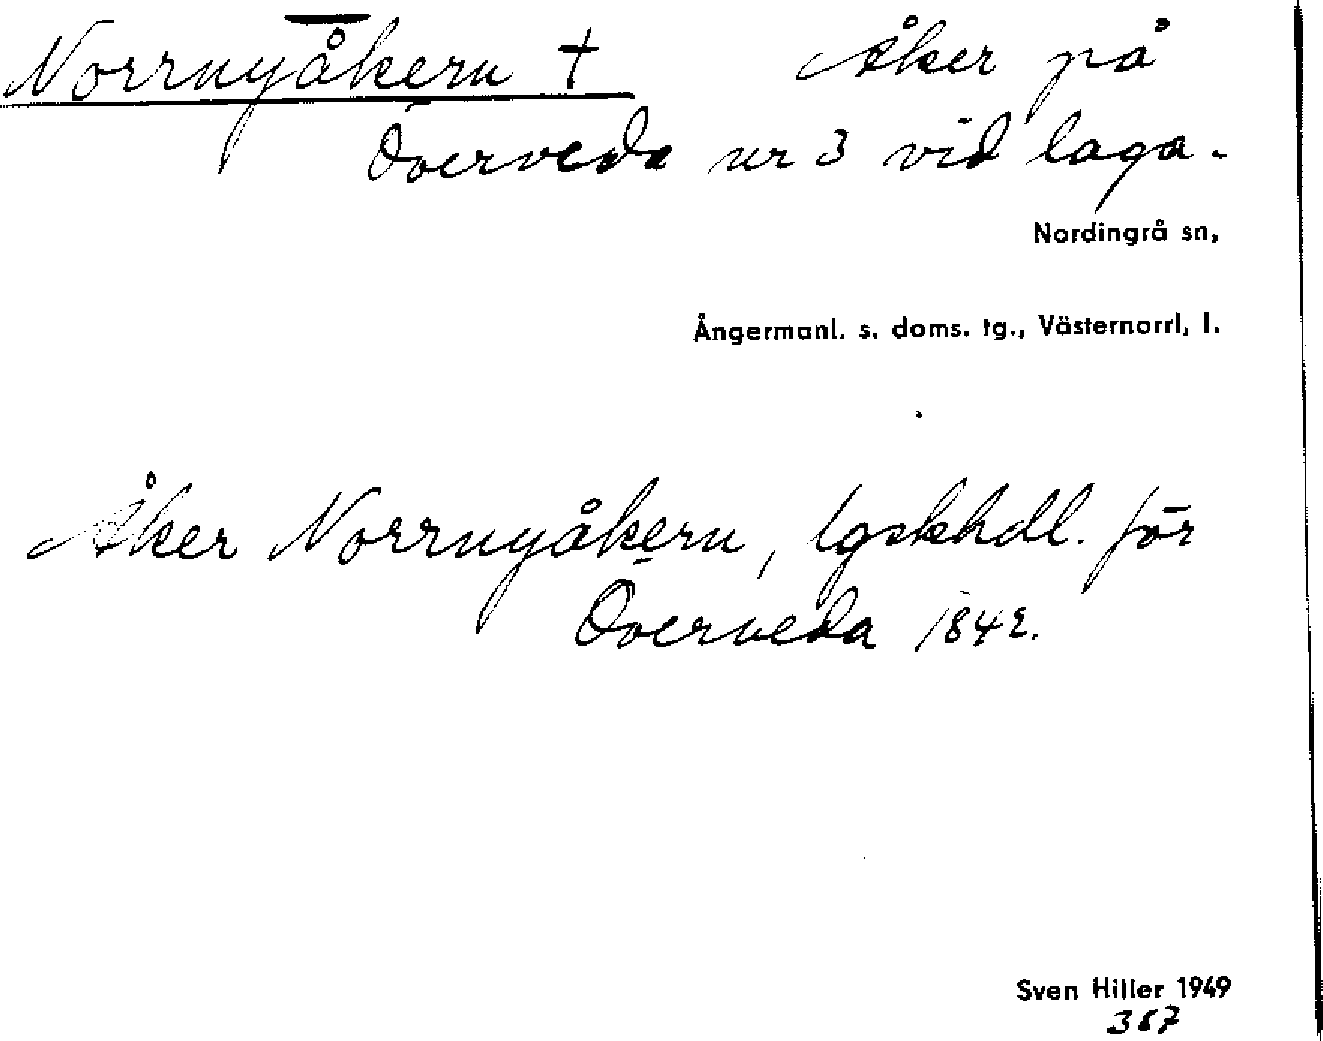 Norrnyåkern † Åker på
Överveda nr 3 vid laga.
Nordingrå sn,
Ångermanl. s. doms. tg., Västernorrl, l.
Åker Norrnyåkern, lgskhdl. för
Överveda 1842.
Sven Hiller 1949
387